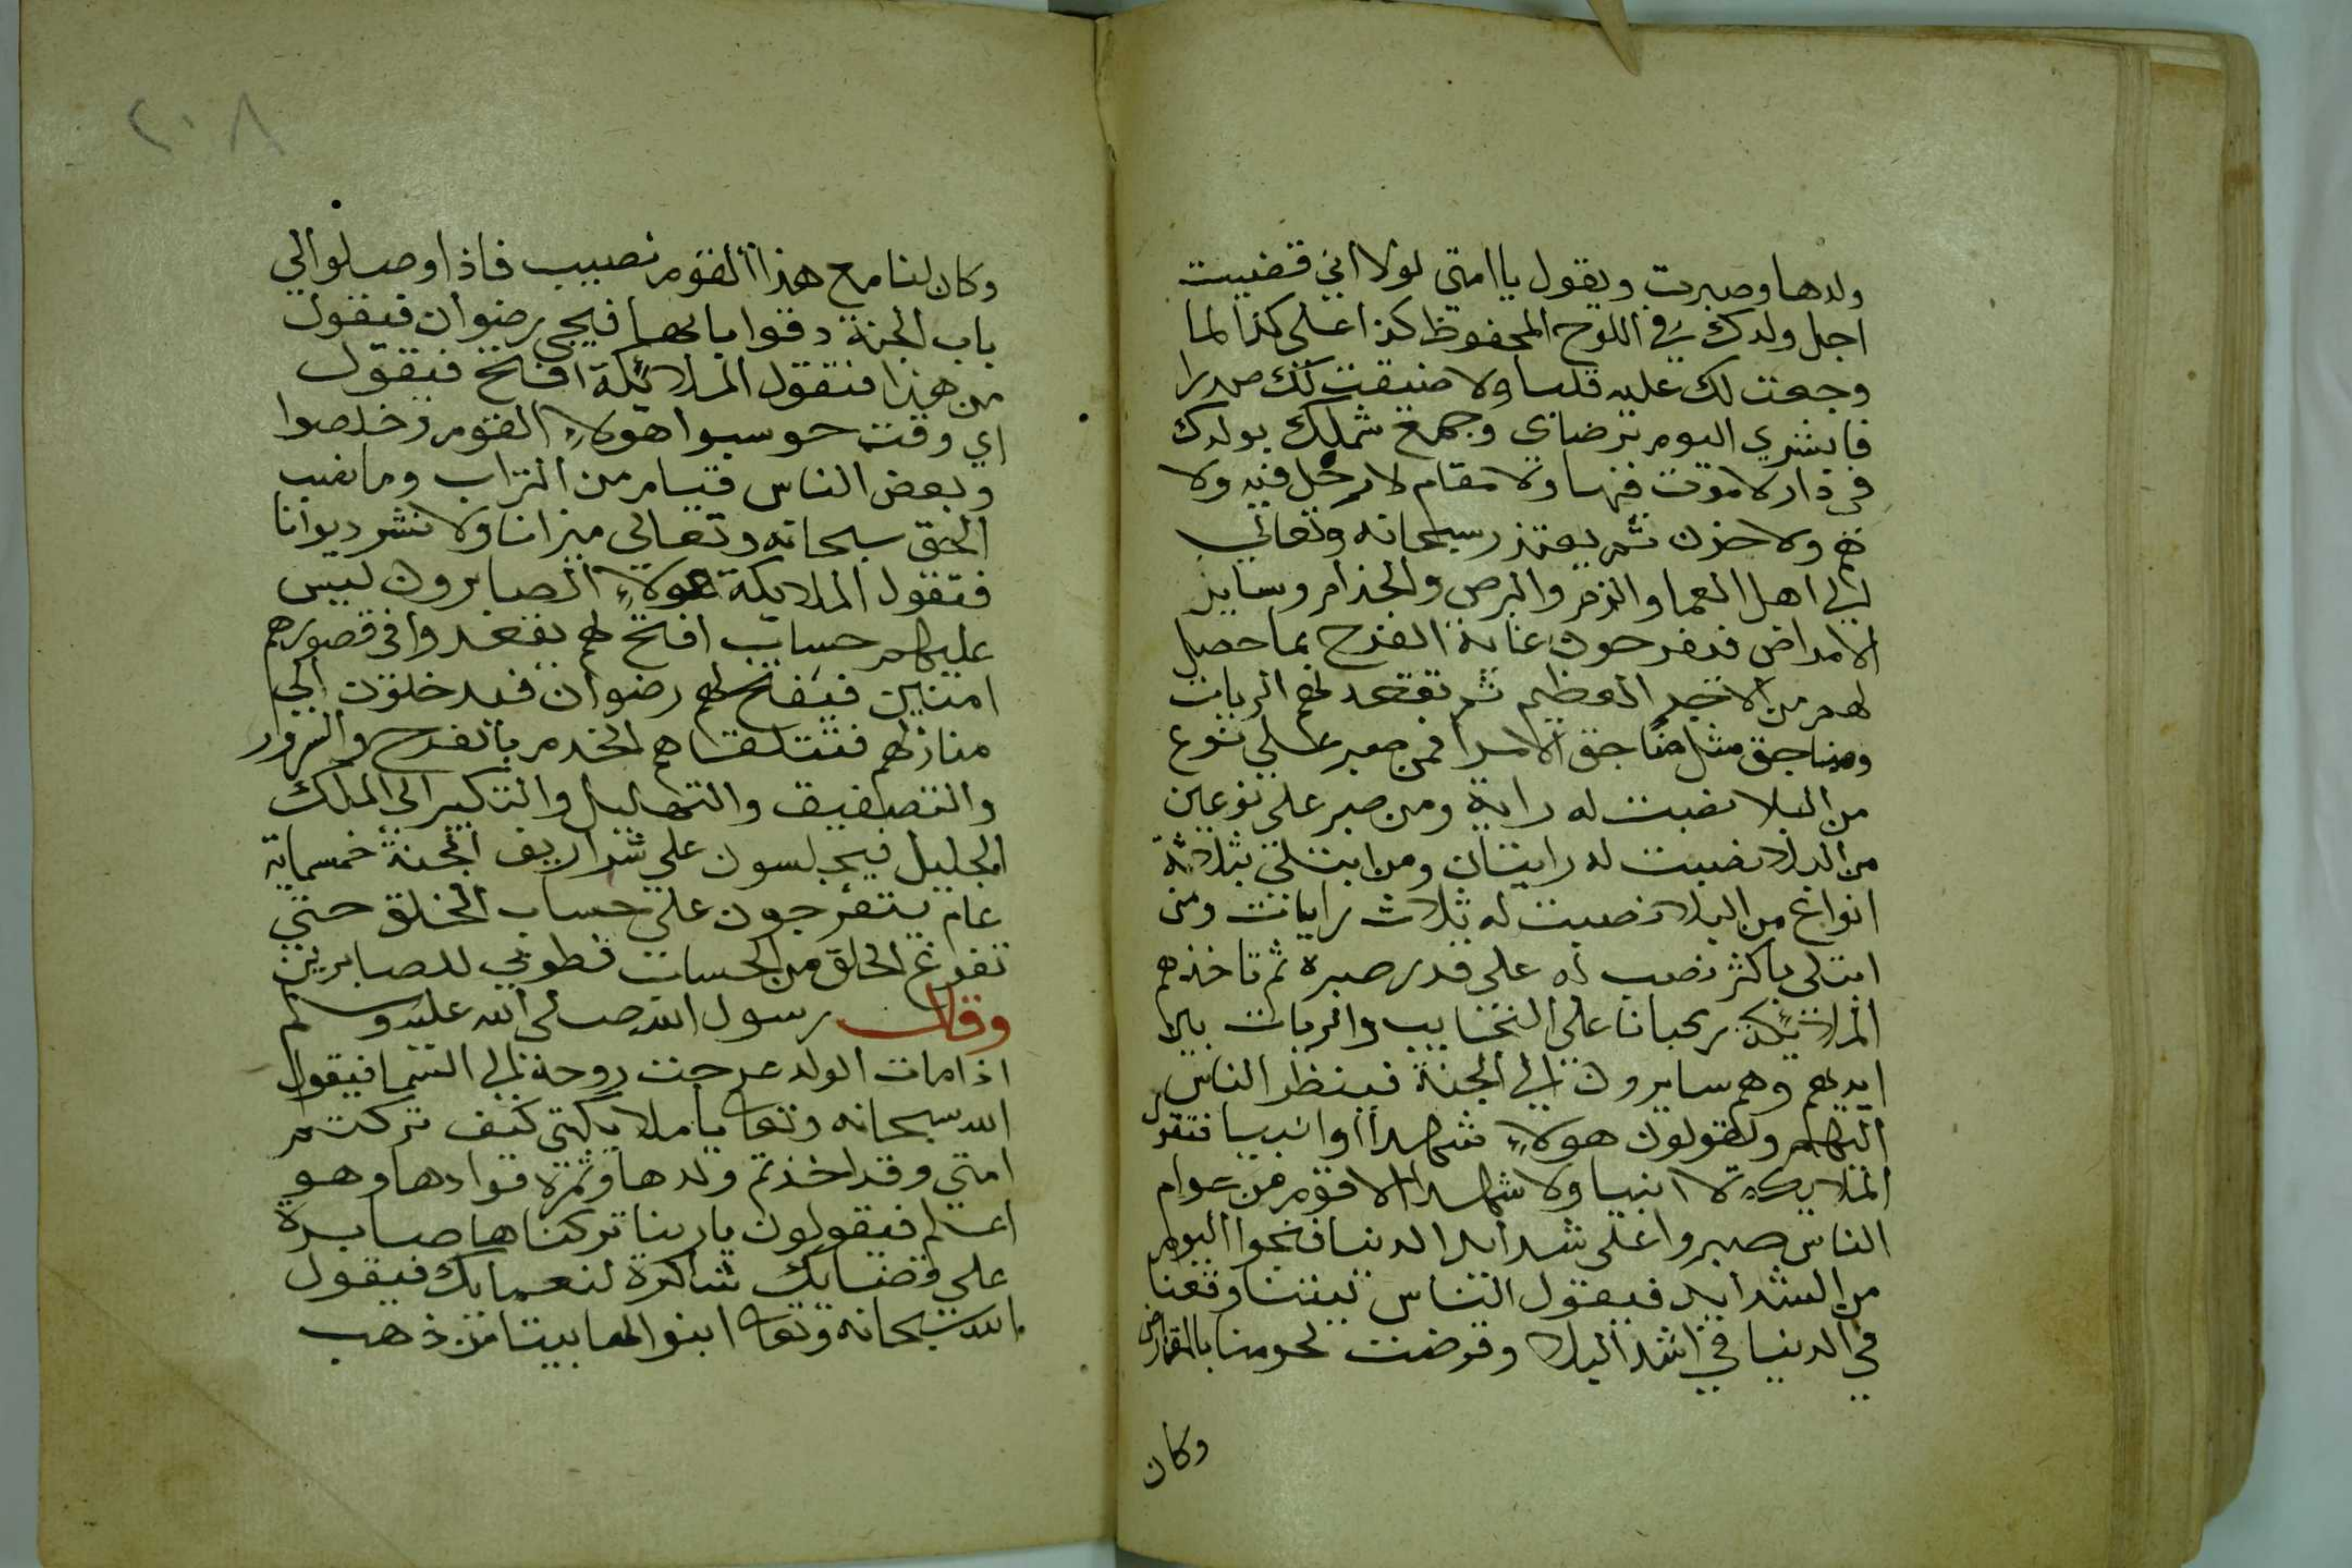 ولدها وصبرت ويقول يا امتي لولا اني قضيت
اجل ولدك في اللوح المحفوظ كذا على كذا لما
وجعت لك عليه قلبا ولا ضيقت لك صدرا
فابشري اليوم برضاي وجمع شملك بولدك
في دار لا موت فيها ولا مقام لا رحل فيه ولا
هم ولا حزن ثم يعتذر سبحانه وتعالي
الى اهل العما والزمر والبرص والجذام وساير
الامراض فيفرحون غاية الفرح بما حصل
لهم من الاجر العظيم ثم تعقد لهم الريات
ومناجق مثل مناجق الامرا فمن صبر علي نوع
من البلا نصبت له راية ومن صبر على نوعين
من البلا نصبت له رايتان ومن ابتلي بثلاثة
انواع من البلا نصبت له ثلاث رايات ومن
ابتلى باكثر نصب له على قدر صبره ثم تاخذهم
الملائكة ركبانا على النجايب والريات بين
ايديهم وهم سايرون الى الجنة فينظر الناس
اليهم ويقولون هولاء شهدا او انبيا فتقول
الملايكة لا انبيا ولا شهدا الا قوم من عوام
الناس صبروا على شدايد الدنيا فنجوا اليوم
من الشدايد فيقول الناس ليتنا وقعنا
في الدنيا في اشد البلا وقرضت لحومنا بالمقاريض
وكان
٢٠٨
وكان لنا مع هذا القوم نصيب فاذا وصلوا الي
باب الجنة دقوا بابها فيجي رضوان فيقول
من هذا فتقول الملائكة افتح فيقول
اي وقت حوسبوا هولاء القوم وخلصوا
وبعض الناس قيام من التراب وما نصب
الحق سبحانه وتعالي ميزانا ولا نشر ديوانا
فتقول الملايكة هولاء الصابرون ليس
عليهم حساب افتح لهم يقعدوا في قصورهم
امنين فيفتح لهم رضوان فيدخلون الي
منازلهم فتتلقاهم الخدم بالفرح والسرور
والتصفيق والتهليل والتكبير الى الملك
الجليل فيجلسون علي شراريف الجنة خمسماية
عام يتفرجون علي حساب الخلق حتي
تفرغ الخلق من الحساب فطوبي للصابرين
وقال رسول الله صلى الله عليه وسلم
اذا مات الولد عرجت روحه الى السما فيقول
الله سبحانه وتعا يا ملايكتي كيف تركتم
امتي وقد اخذتم ولدها وثمرة فوادها وهو
اعلم فيقولون يا ربنا تركناها صابرة
علي قضايك شاكرة لنعمايك فيقول
الله سبحانه وتعا ابنوا لها بيتا من ذهب